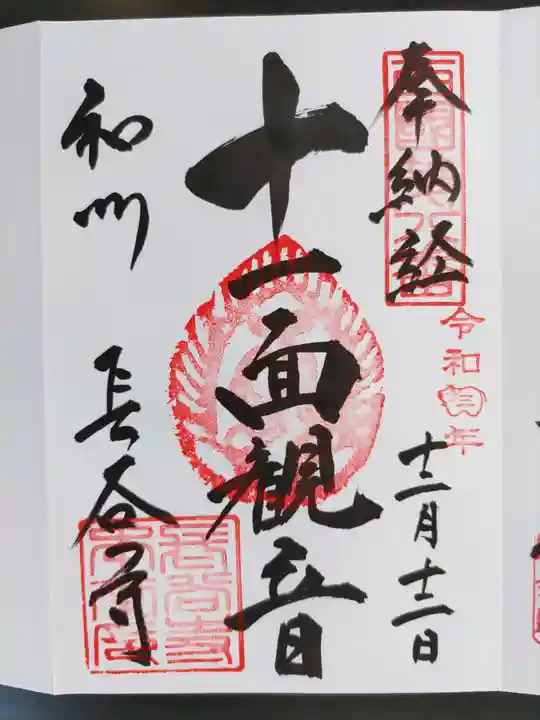 奉納経
令和
年
十二月十二日
十一面観音
和州
長谷寺